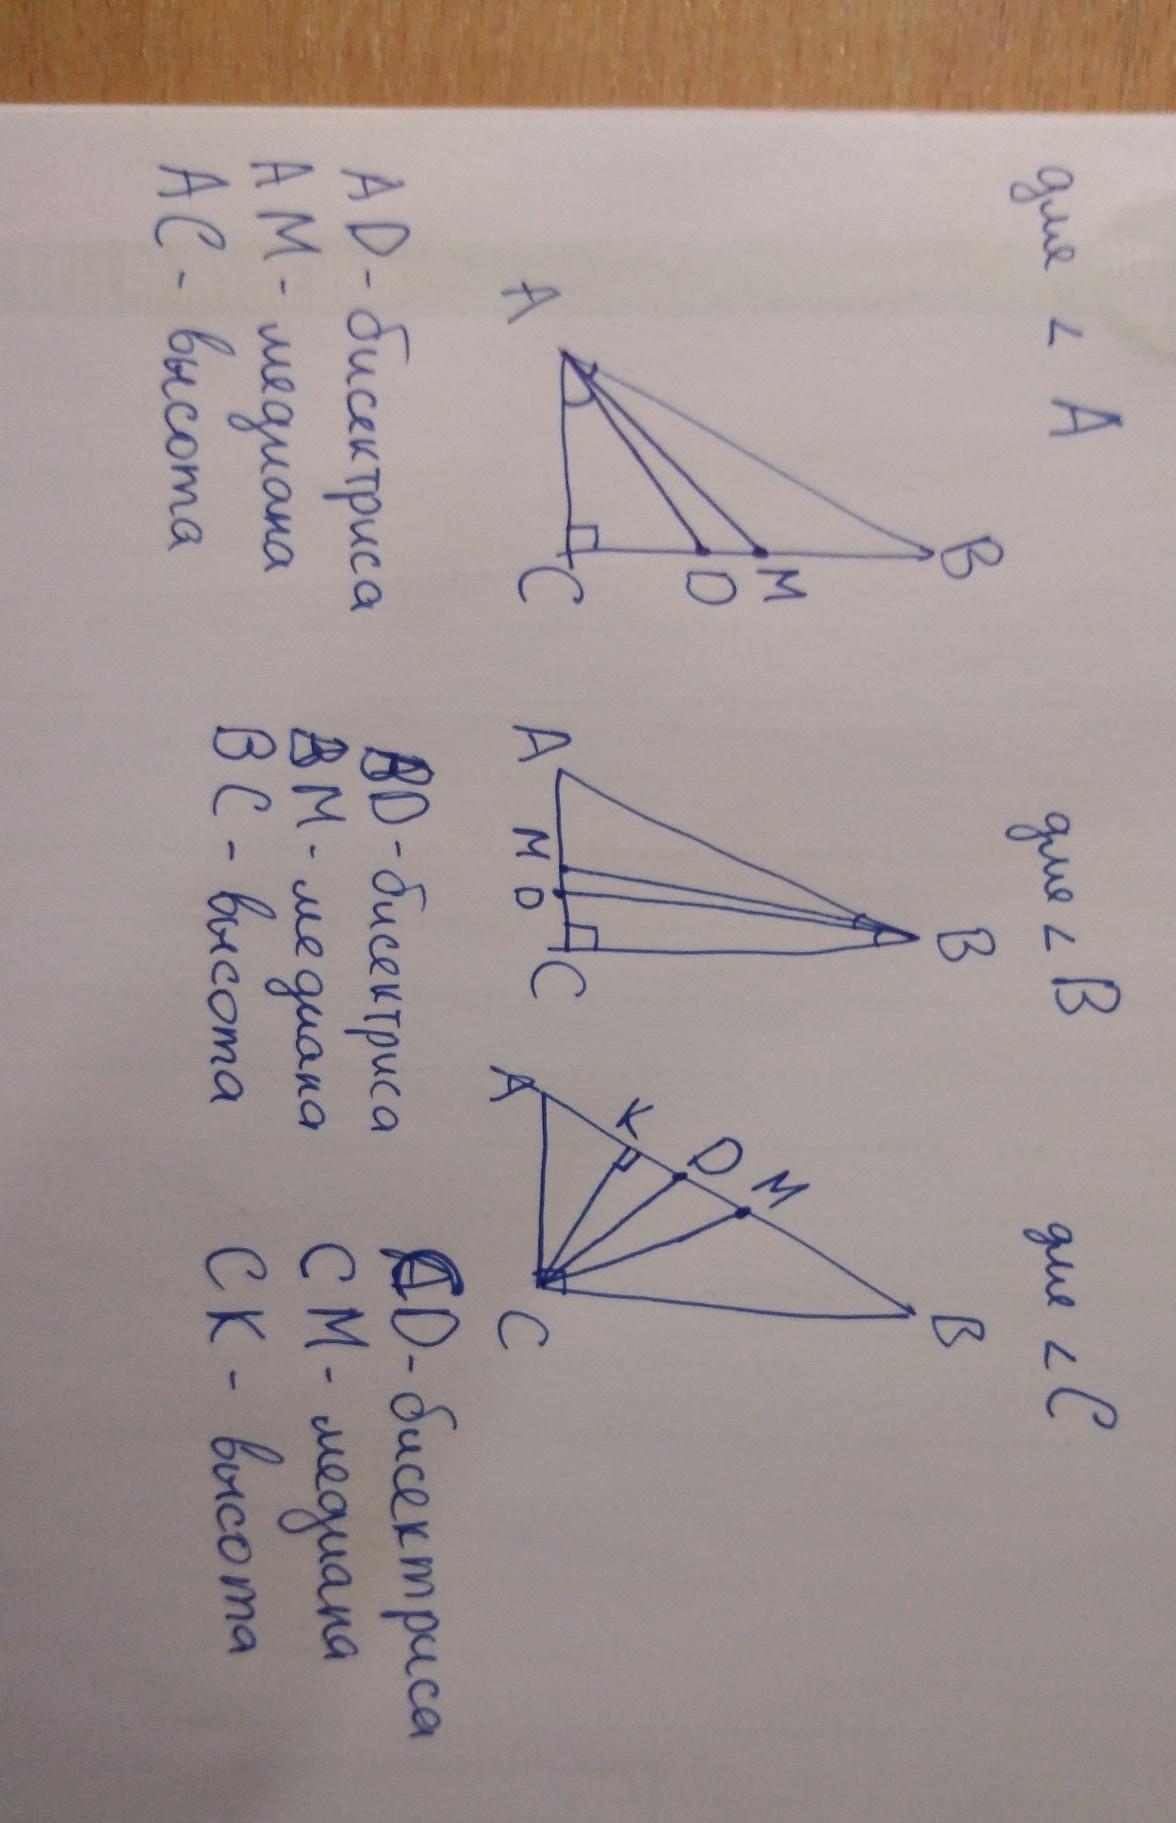 для < A
для < B
для < C
B
A
M
D
C
B
A
M
D
C
B
M
D
K
A
C
AD - бисектриса
AM - медиана
AC - высота
BD - бисектриса
BM - медиана
BC - высота
CD - бисектриса
CM - медиана
CK - высота